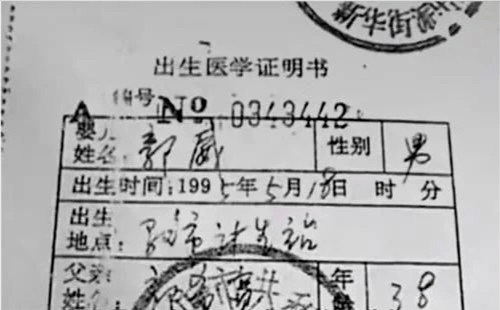 新华街派
出生医学证明书
编号 No 0343442
婴儿姓名 郭威 性别 男
出生时间:1995年5月18日 时 分
出生地点: 市计生站
父亲姓名 年龄 38